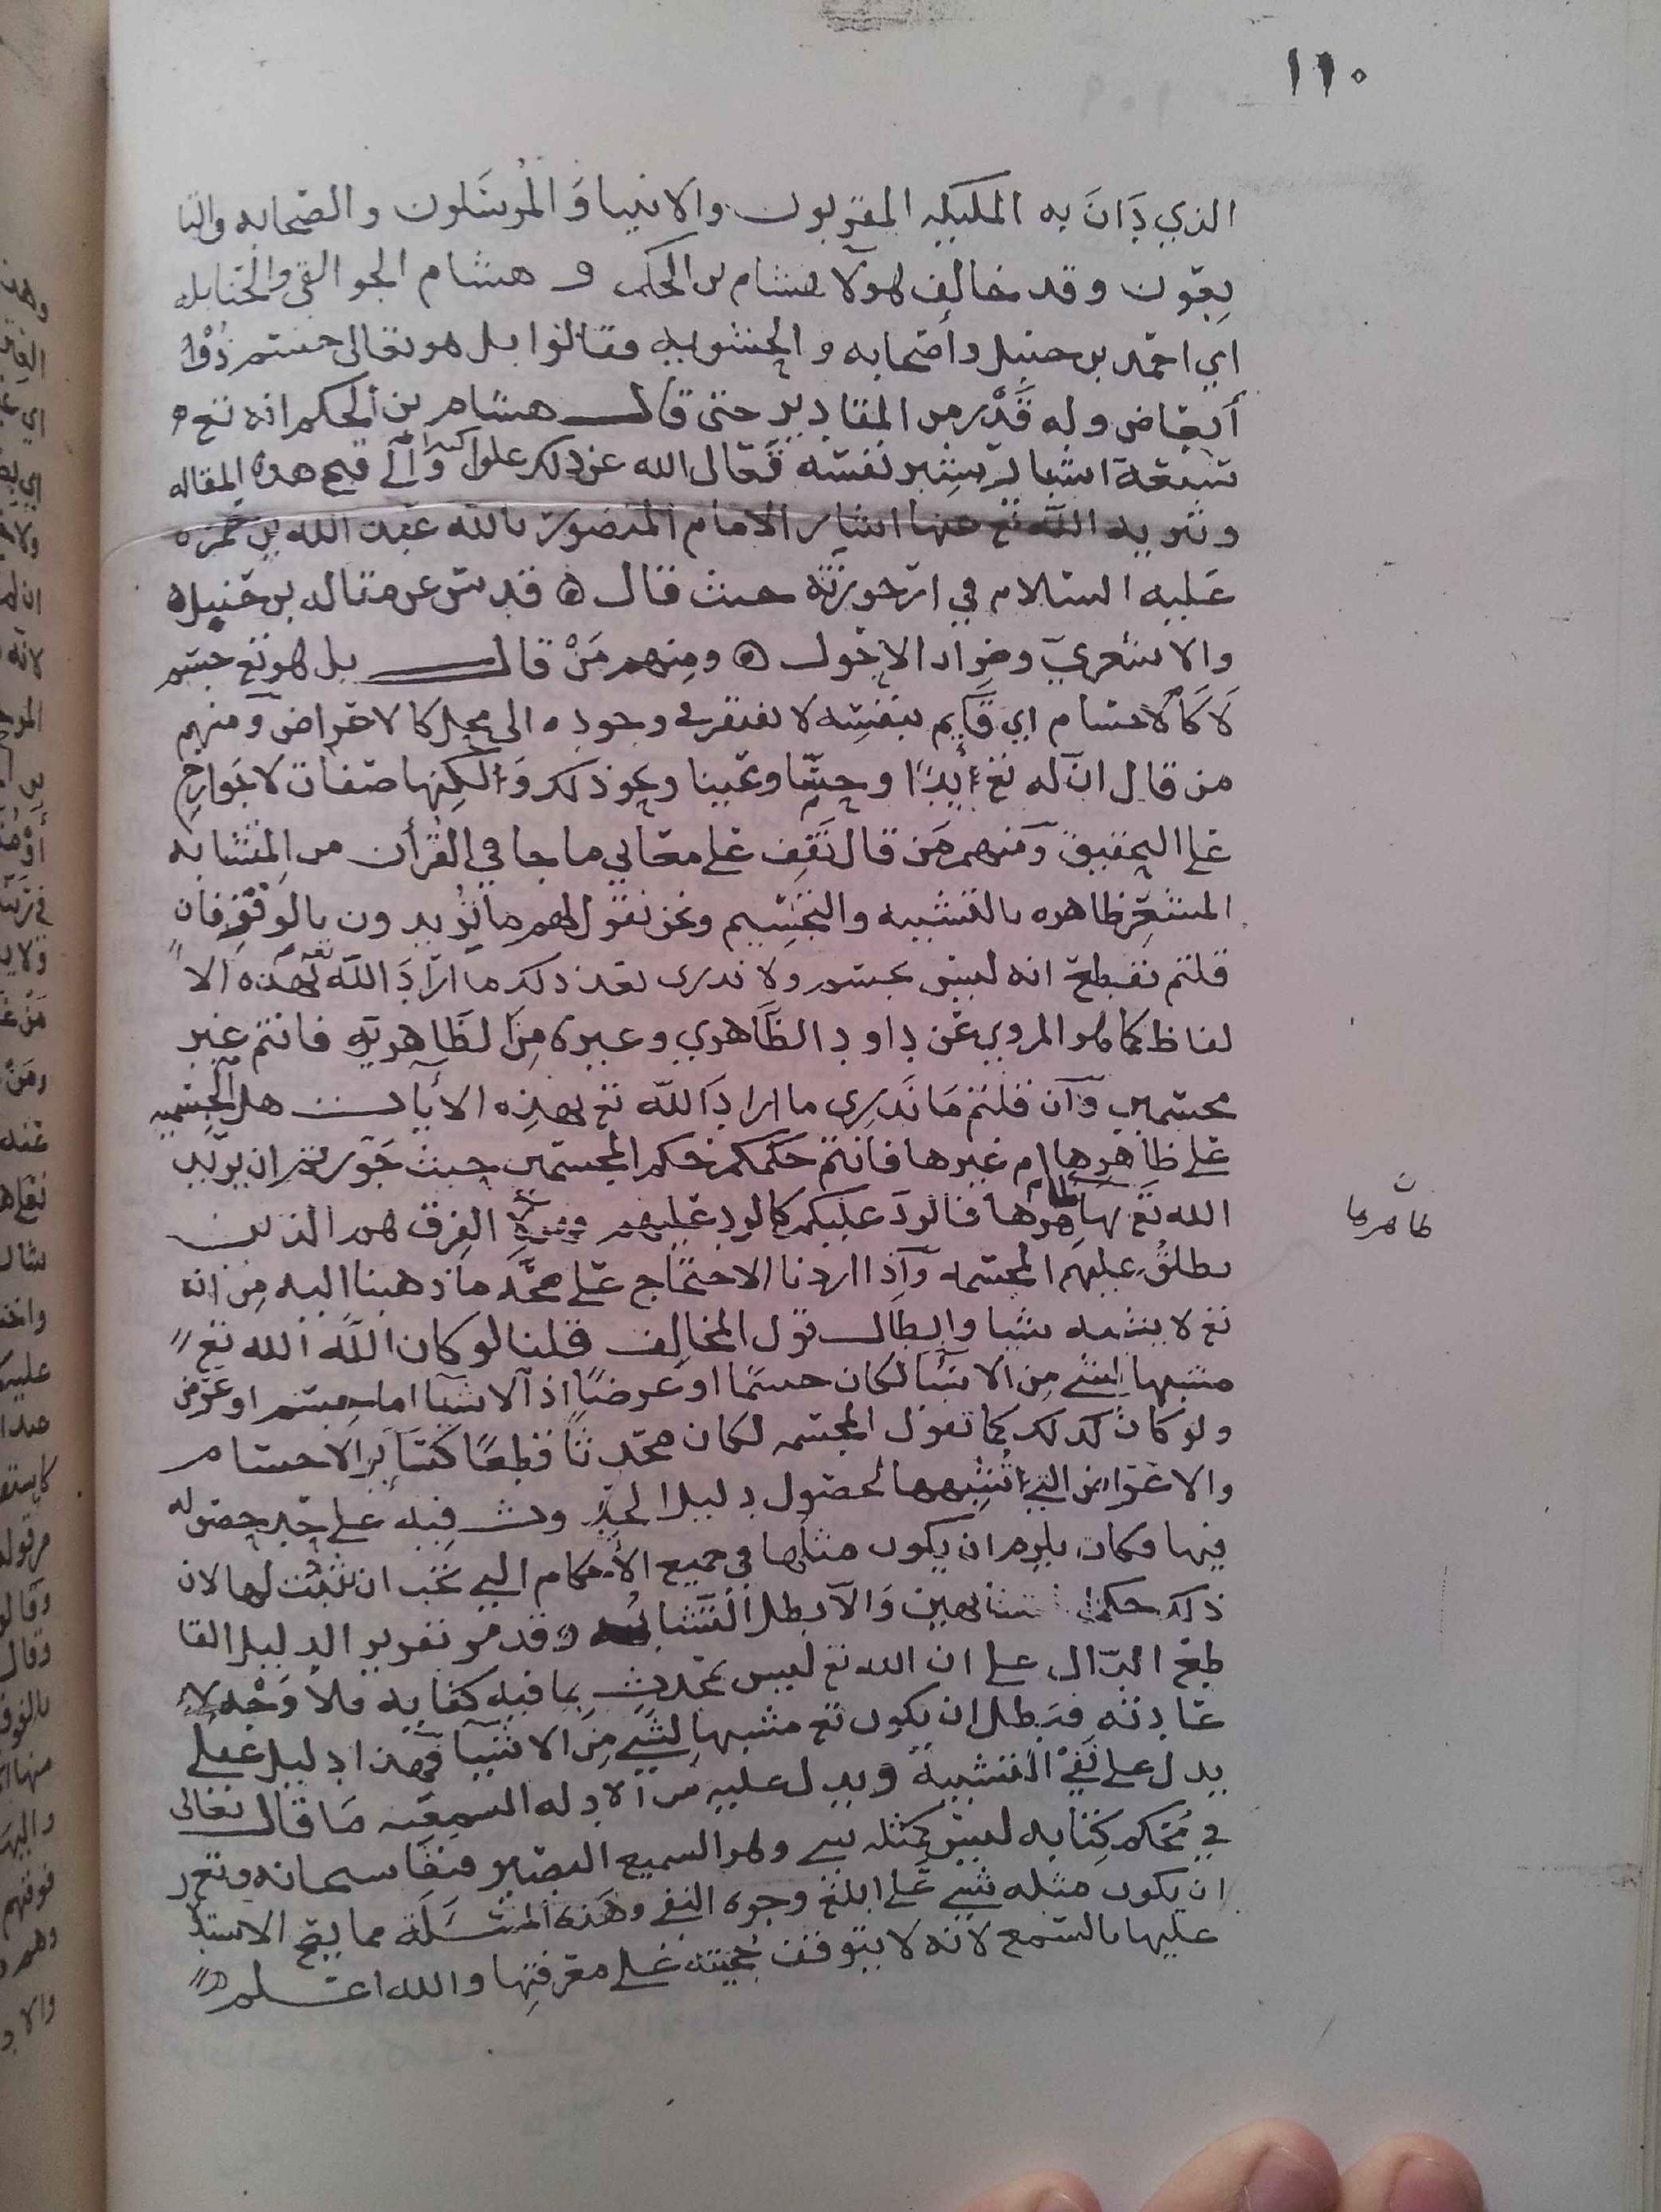 ١١٠
الذي دَانَ به المليكه المقربون والانبيا وَالمُرسَلون والصحابه والتا
بعون وقد خالف هولآ هشام بن الحكم و هشام الجوالقي والحنابله
اي احمد بن حنبل وأصحابه والحشويه وقالوا بل هو تعالى جسم ذُوْا
أبعاض وله قَدْر من المقادير حتى قال هشام بن الحكم انه تع
سبعة اشبار بشبر نفسه فتعال الله عن ذلك علوا كبيرا وَآلى قبح هذه المقاله
وتنزيه الله تع عنها اشار الامام المنصور بالله عبد الله بن حمزه
عليه السلام في ارجوزته حيث قال ه قد من عن مقاله بن حنبل ه
والاشعري وضرار الاحول ه ومنهم مَنْ قال بل هو تع جسم
لَا كَالاجسام اي قايم بنفسه لا يفتقر في وجوده الى محل كالاعراض ومنهم
من قال ان له تع أيدًا وجسمًا وعينا ونحو ذلك وَلكنها صفات لا جوارح
على التحقيق ومنهم مَن قال نَقِف على معاني ما جا في القرأن من المتشابه
المشعر ظاهره بالتشبيه والتجسيم ونحن نقول لهم ما تُريدون بالوقف فان
قلتم نقطع انه ليس بجسم ولا ندرى بعد ذلك ما ارادَ اللّه تع بهذه الا
لفاظ كما هو المروي عن داود الظاهري وغيره مِن الظاهريه فانتم غير
مجسمين وَآن قلتم مَا نَدرِى ما ارادَ اللّه تع بهذِه الأيات هل الجسميه
على ظاهِرِها ام غيرها فانتم حكمكم حكم المجسمين حيث جَوزتم ان يريد
الله تع بها ظاهرها فالردَ عليكم كالرد عليهم وهذه الفِرَق هم الذين
ظاهرها
يطلقُ عليهم المجسمه وَآذا اردنا الاحتجاج على صحّه ما ذهبنا اليه مِن انه
تع لا يشبه شيا وابطال قول المخالف قلنا لو كان اللّه الله تع
مشبها لشي مِن الاشيآ لكان جسمًا او عَرضًا اذ آلاشيآ اما جسم او عَرَض
ولو كان كذلك كما تقول المجسمه لكان محدثًا قطعًا كسَاير الاجسام
والاعراض التي اشبهها لحصول دليل الحدوث فيه على حد حصوله
فيها وكان يلزم ان يكون مثلها في جميع الأحكام التي يجب ان تثبت لها لان
ذلك حكم المتشابهين وَالا بطل التشابه وقد مر تقرير الدليل القا
طع الدّال على ان الله تع ليس بمحدث بما فيه كفايه فلا وَجْه لا
عادته فبطل ان يكون تع مشبها لشي مِن الاشيآ فهذا دليل عقلي
يدل على نَفي التشبيه ويدل عليه من الادله السمعيه مَا قال تعالى
في مُحكم كِتابه ليس كمثله شي وهو السميع البصير فنفا سبحانه وتع
ان يكون مثله شي عَلى ابلغ وجوه النفي وهَذه المسَلَة مما يصح الاستد
عليها بالسمع لأنه لا يتوقف صحته على معرفتها والله اعلم